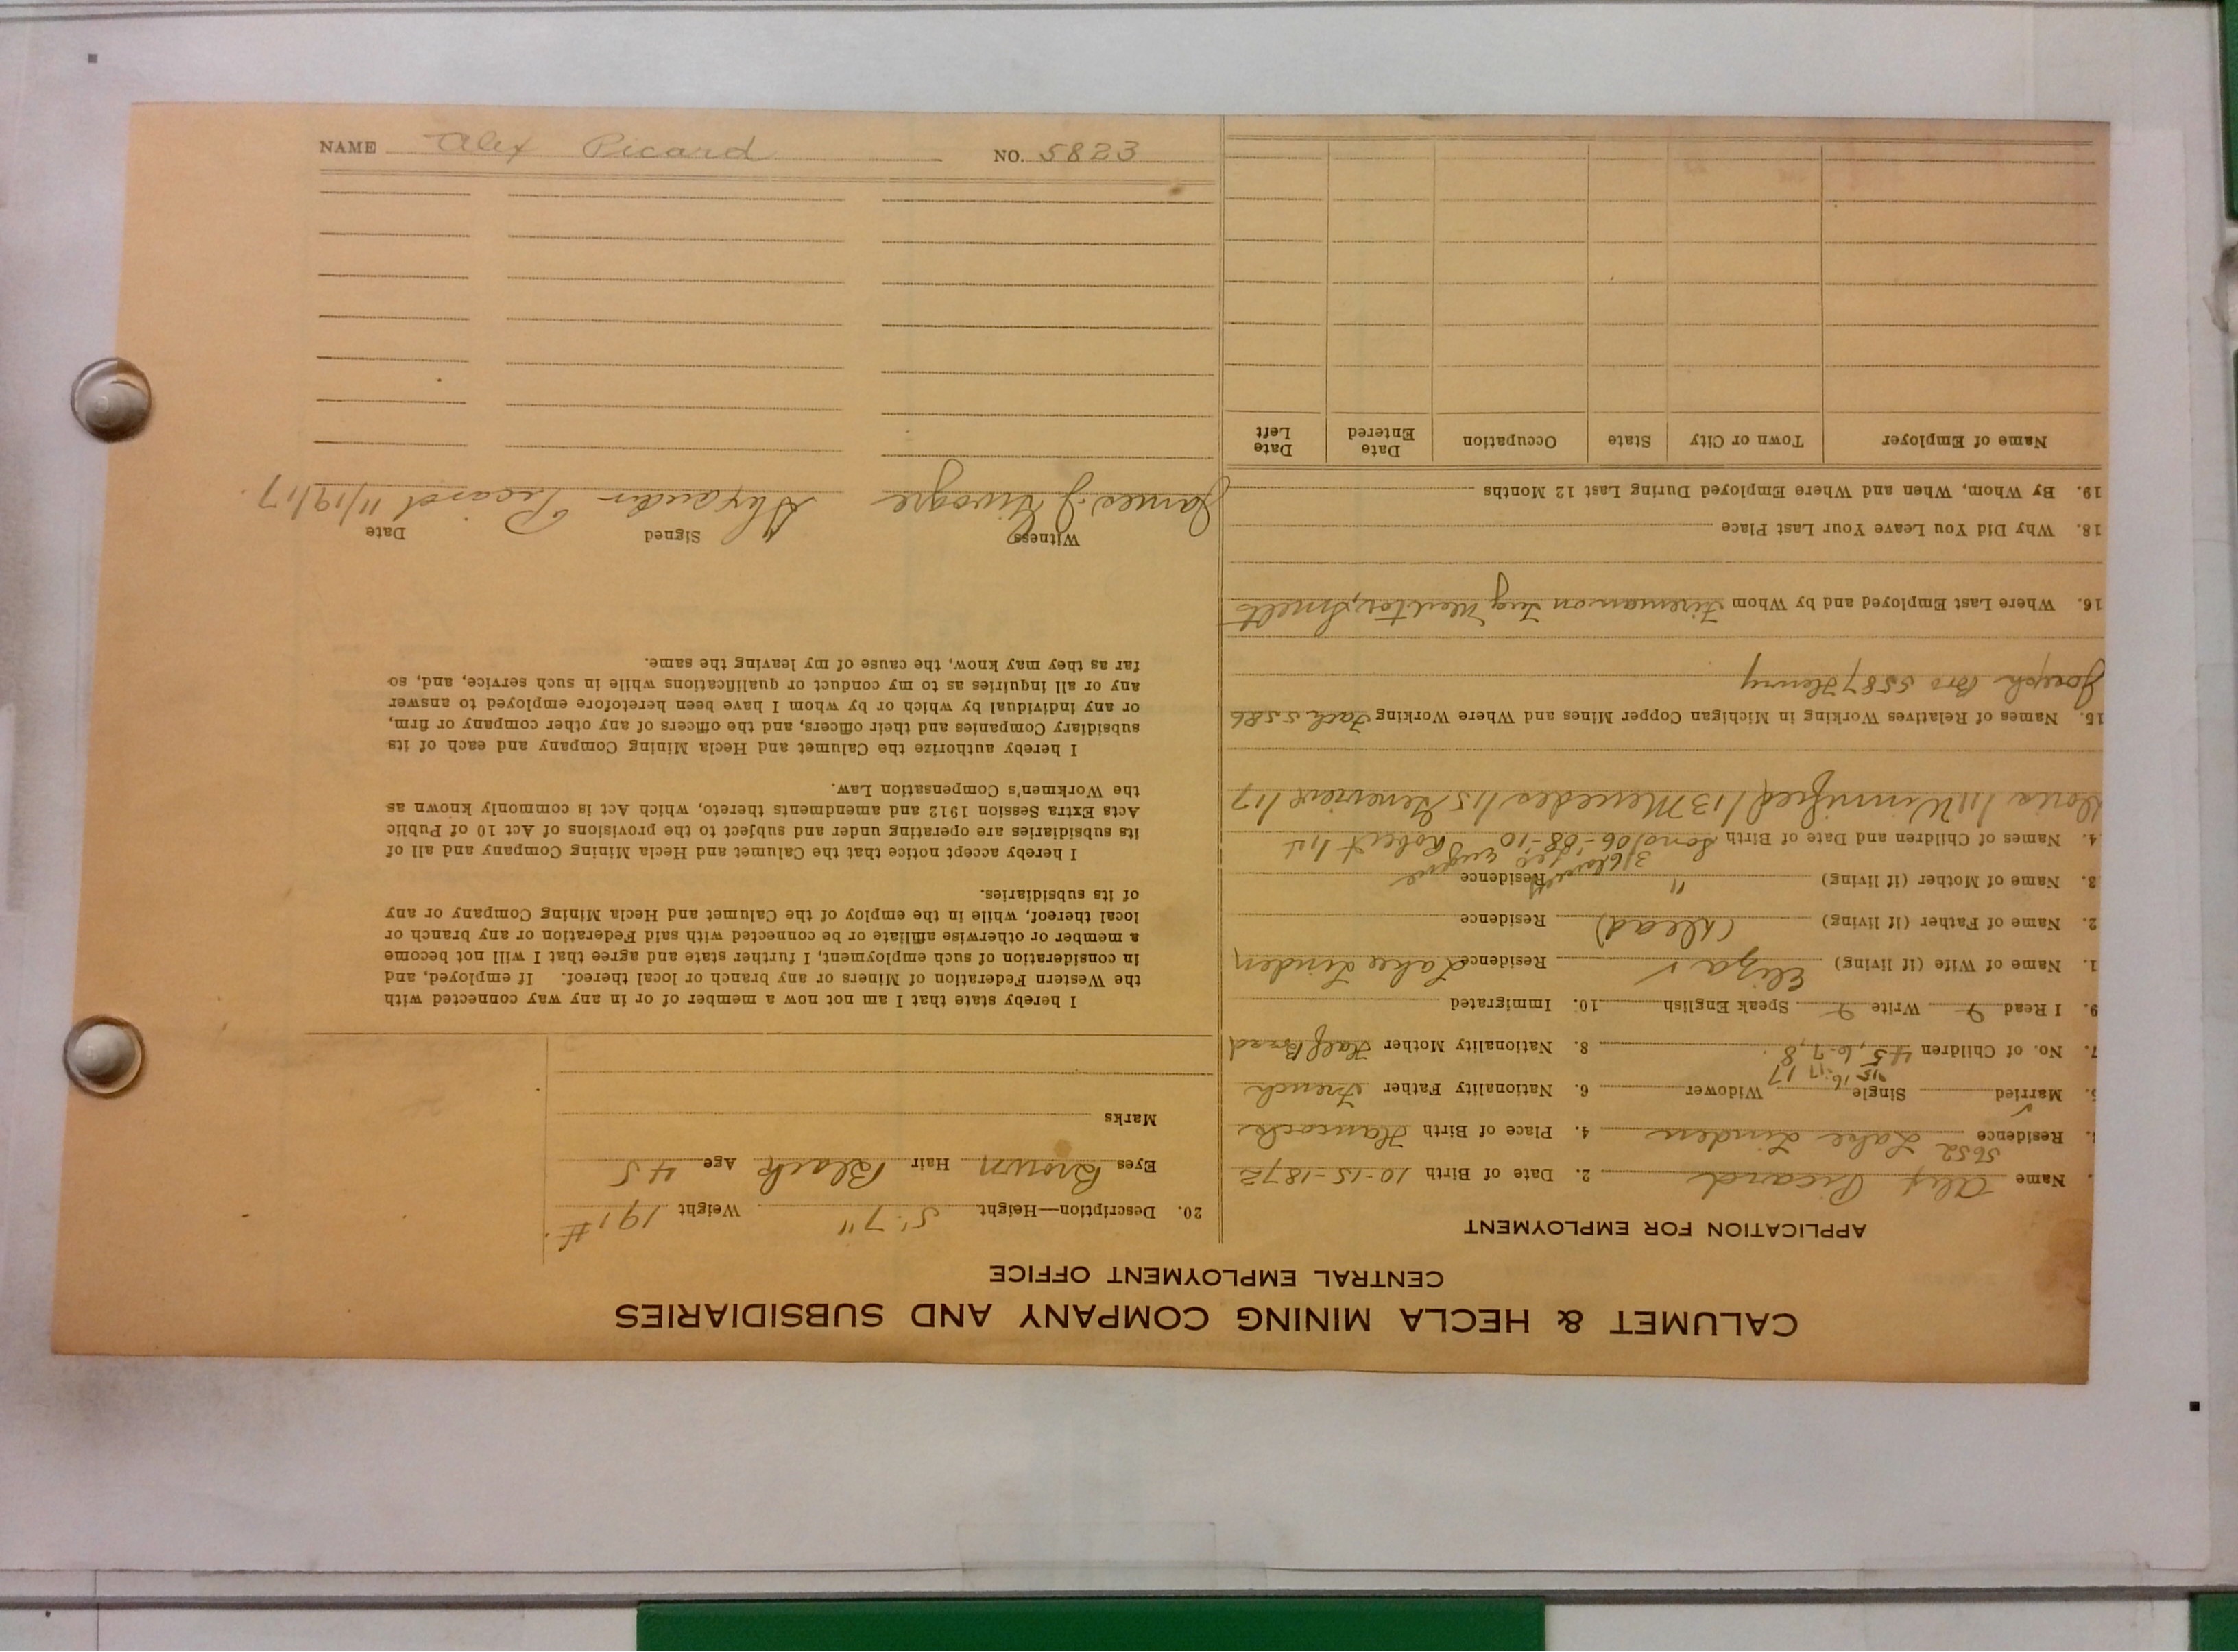 CALUMET & HECLA MINING COMPANY AND SUBSIDIARIES
CENTRAL EMPLOYMENT OFFICE
APPLICATION FOR EMPLOYMENT
Name Alex Picard 2. Date of Birth 10-15-1872
5652
Residence Lake Linden 4. Place of Birth Hancock
Married ✓ Single Widower 6. Nationality Father French
'15 '16 '17 17
7. No. of Children 4 5, 6, 7, 8. 8. Nationality Mother Half Breed
9. I Read Write Speak English 10. Immigrated
1. Name of Wife (if living) Eliza ✓ Residence Lake Linden
2. Name of Father (if living) (Dead) Residence
3. Name of Mother (if living) " Residence
4. Names of Children and Date of Birth /06-'08-10 Robert
Doris /11 Winnifred /13 Mercedes /15 Genevieve /17
15. Names of Relatives Working in Michigan Copper Mines and Where Working 5586
Joseph Bro 5587 Henry
16. Where Last Employed and by Whom Fireman on Tug Smelt
18. Why Did You Leave Your Last Place
19. By Whom, When and Where Employed During Last 12 Months
Name of Employer Town or City State Occupation Date Entered Date Left
20. Description—Height 5' 7" Weight 191#.
Eyes Brown Hair Black Age 45
Marks
I hereby state that I am not now a member of or in any way connected with
the Western Federation of Miners or any branch or local thereof. If employed, and
in consideration of such employment, I further state and agree that I will not become
a member or otherwise affiliate or be connected with said Federation or any branch or
local thereof, while in the employ of the Calumet and Hecla Mining Company or any
of its subsidiaries.
I hereby accept notice that the Calumet and Hecla Mining Company and all of
its subsidiaries are operating under and subject to the provisions of Act 10 of Public
Acts Extra Session 1912 and amendments thereto, which Act is commonly known as
the Workmen's Compensation Law.
I hereby authorize the Calumet and Hecla Mining Company and each of its
subsidiary Companies and their officers, and the officers of any other company or firm,
or any individual by which or by whom I have been heretofore employed to answer
any or all inquiries as to my conduct or qualifications while in such service, and, so
far as they may know, the cause of my leaving the same.
Witness Signed Date
James J. Alexander Picard 11/19/17.
NAME Alex Picard NO. 5823